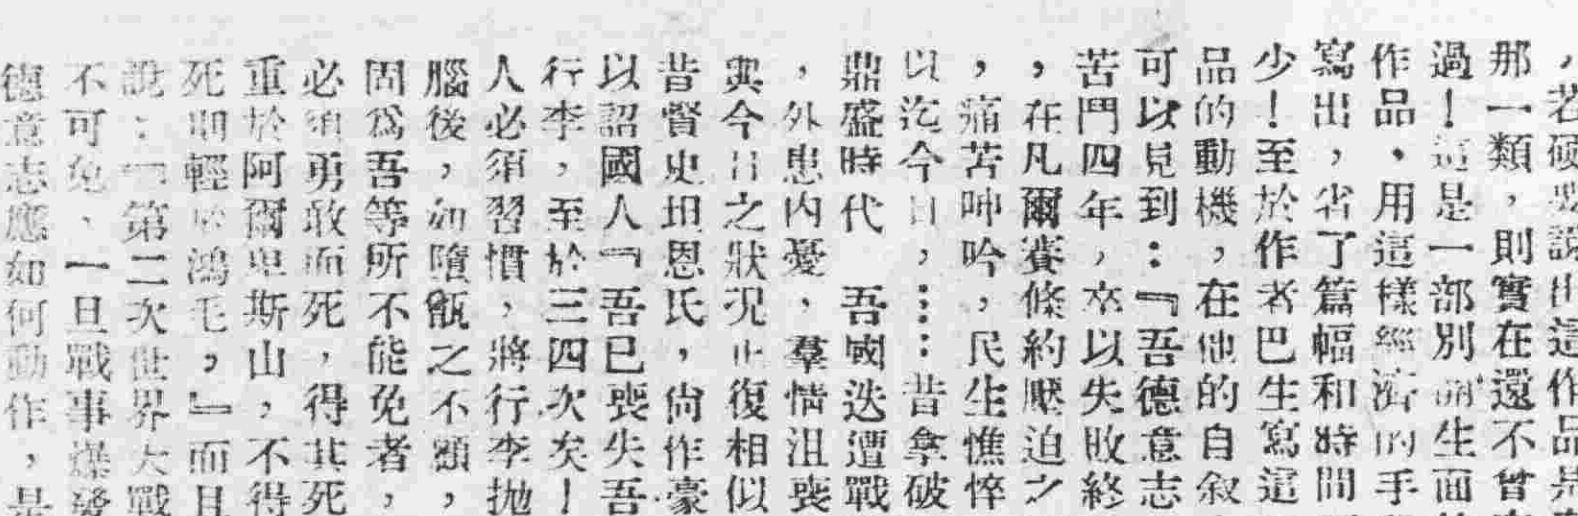 ，若硬要說出這作品是
那一類，則實在還不曾
過！這是一部別開生面
作品，用這樣經濟的手
寫出，省了篇幅和時間
少！至於作者巴生寫這
品的動機，在他的自敘
可以見到：『吾德意志
苦鬥四年，卒以失敗終
，在凡爾賽條約壓迫之
，痛苦呻吟，民生憔悴
以迄今日，……昔拿破
鼎盛時代　吾國迭遭戰
，外患內憂，羣情沮喪
與今日之狀況正復相似
昔賢史坦恩氏，尙作豪
以詔國人『吾已喪失吾
行李，至於三四次矣！
人必須習慣，將行李拋
腦後，如墮甑之不顧，
固爲吾等所不能免者，
必須勇敢而死，得其死
重於阿爾卑斯山，不得
死則輕於鴻毛，』而且
說：『第二次世界大戰
不可免、一旦戰事爆發
德意志應如何動作，是